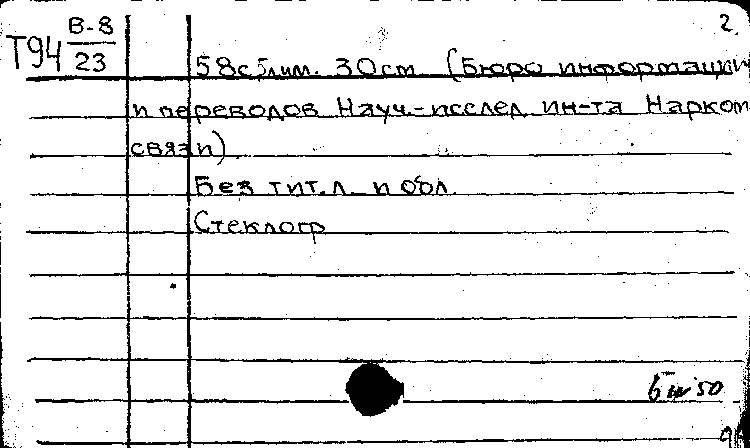 2
Т94 В-8/23
58с 5лим. 30см (Бюро информации
и переводов Науч.-исслед. ин-та Нарком
связи)
Без тит. л. и обл.
Стеклогр